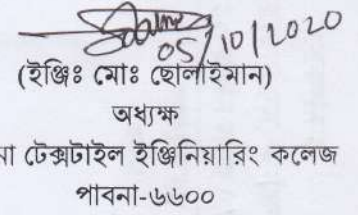 05/10/2020
(ইঞ্জিঃ মোঃ ছোলাইমান)
অধ্যক্ষ
না টেক্সটাইল ইঞ্জিনিয়ারিং কলেজ
পাবনা-৬৬০০